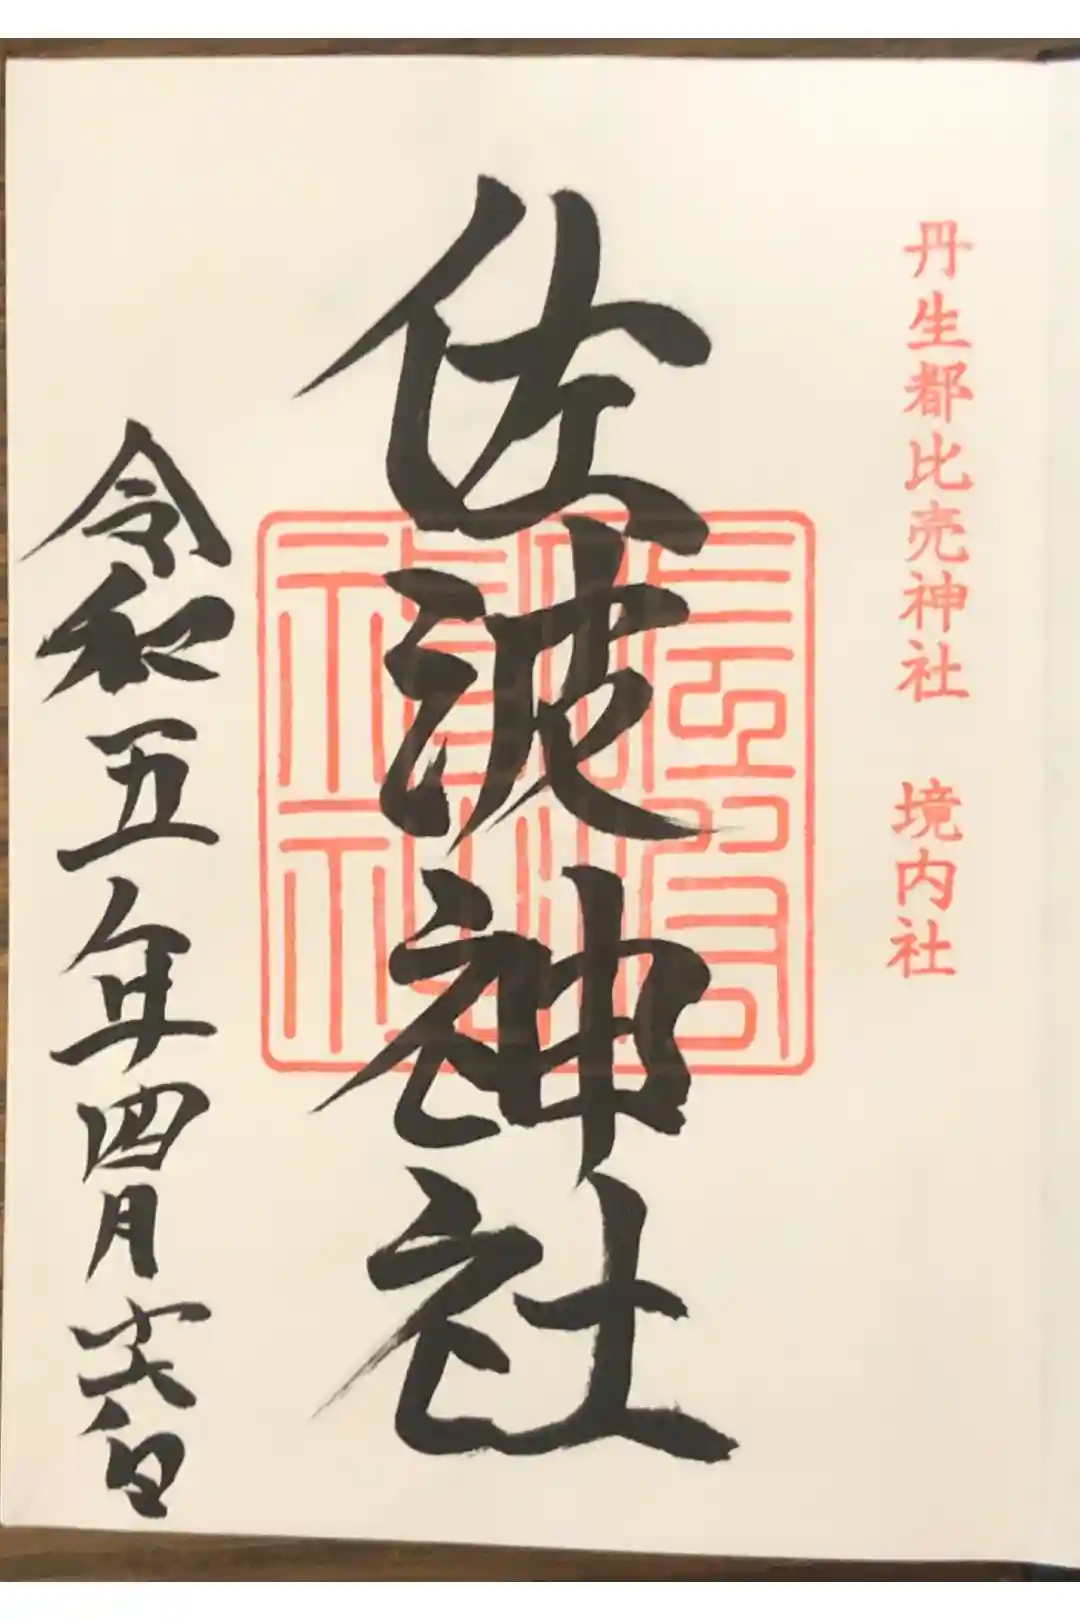 丹生都比売神社 境内社
佐波神社
令和五年四月十六日